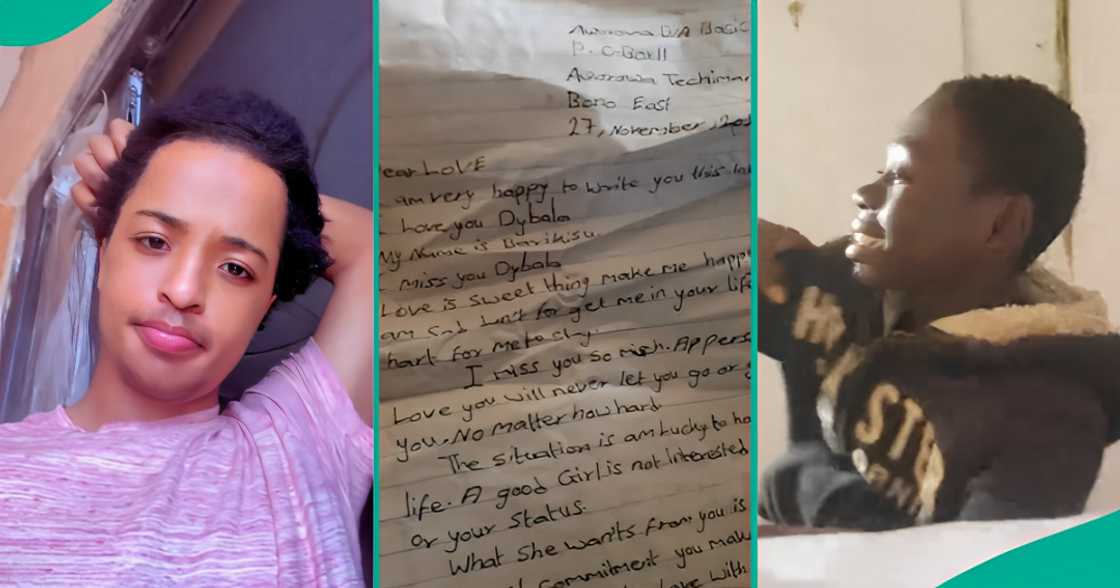 Aworowa D/A Basic
P. O-Box 11
Aworowa Techiman
Bono East
27, November,
ear LOVE
am very happy to write you this
I Love you Dybala
My Name is Barikisu.
I miss you Dybala
Love is sweet thing make me happy
am Sad don't for get me in your life
hart for me to
I miss you so
Love you will never let you go or
you. No matter how hard
The situation is am Lucky to ha
life. A good Girl is not Interested
or your Status.
What She wan'ts from you is
commitment you make
Love with
STR